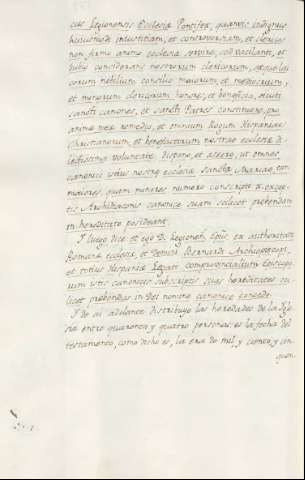 cus Legionensis Ecclesiæ Pontifex, quamvis indignus
hujusmodi injustitiam, et controversiam, et clericos
non firmo animo ecclesiæ servire, sed vacilante, et
dubio considerans nostrorum clericorum, atque lai
corum nobilium consilio maiorum, et mediocrium,
et minorum clericorum honore, et beneficia, sicuti
sancti canones, et sancti Patres constituere, pro
animæ meæ remedio, et omnium Regum Hispaniæ
Christianorum, et benefactorum nostræ ecclesiæ di
lectissima voluntate dispono, et assero, ut omnes
canonici istius nostræ ecclesiæ Sanctæ Mariæ, tam
maiores, quam minores numero conscripti
tis Archidiaconis canonice suam scilicet prebendam
in hereditate posideant.
I luego dice et ego D. Legionen. Epūs, ex authoritate
Romanæ ecclesiæ, et Domini Bernardi Archiepiscopi,
et totius Hispaniæ Legati comprovincialium Episcop
orum istis canonicis subscriptis suas hereditates sci
licet prebendas in Dei nomine canonice concedo.
I de ai adelante distribuye las heredades de la Igle
sia entre quarenta, y quatro personas: es la fecha del
testamento, como dicho es, la era de mil y ciento, y cin
quen.